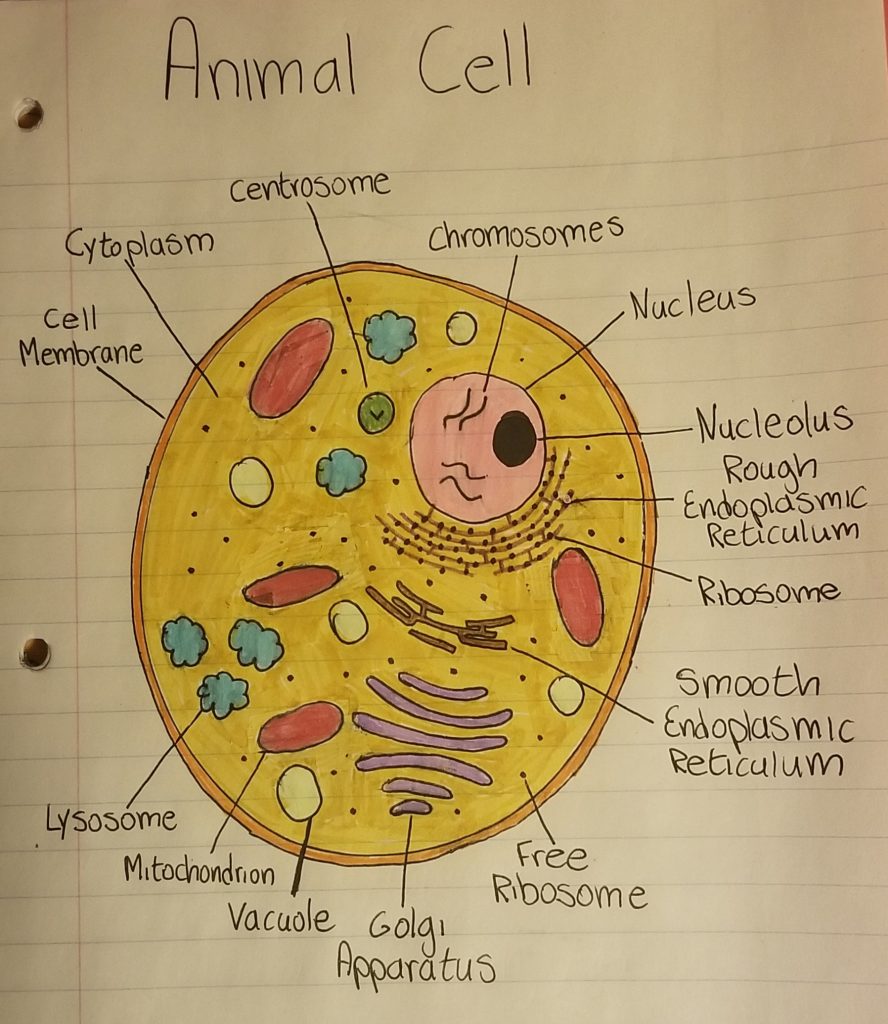 Animal Cell
Centrosome
Chromosomes
Cytoplasm
Nucleus
Cell
Membrane
Nucleolus
Rough
Endoplasmic
Reticulum
Ribosome
Smooth
Endoplasmic
Reticulum
Lysosome
Mitochondrion
Free
Ribosome
Vacuole
Golgi
Apparatus